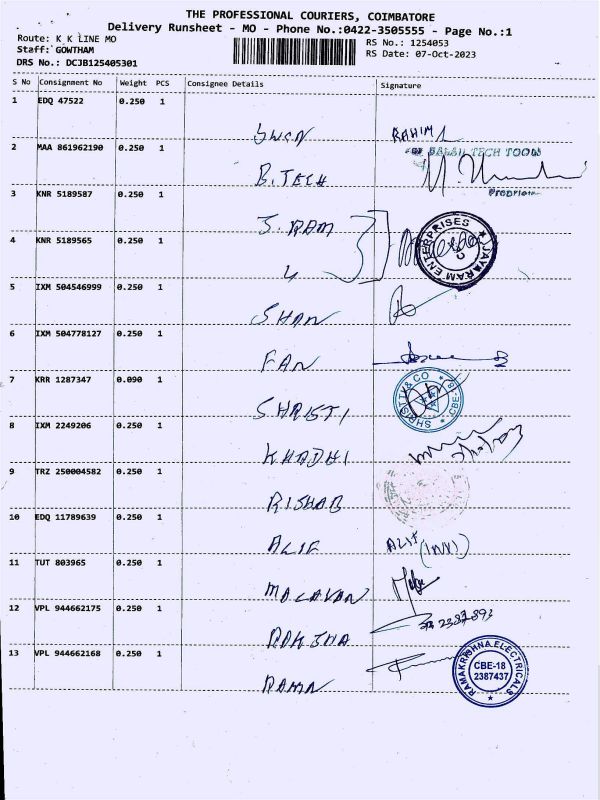 THE PROFESSIONAL COURIERS, COIMBATORE
Delivery Runsheet - MO - Phone No.:0422-3505555 - Page No.:1
Route: K K LINE MO
Staff: GOWTHAM
DRS No.: DCJB125405301
RS No.: 1254053
RS Date: 07-Oct-2023
S No Consignment No Weight PCS Consignee Details Signature
1 EDQ 47522 0.250 1
RAHIM
2 MAA 861962190 0.250 1
B. TECH
3 KNR 5189587 0.250 1
J. RAM
4 KNR 5189565 0.250 1
JAYARAM ENTERPRISES
5 IXM 504546999 0.250 1
SHAN
6 IXM 504778127 0.250 1
FAN
7 KRR 1287347 0.090 1
SHRISTI
SHRISTTY & CO
CBE-18
8 IXM 2249206 0.250 1
KHADHI
9 TRZ 250004582 0.250 1
RISHAB
10 EDQ 11789639 0.250 1
ALIF
11 TUT 803965 0.250 1
MALAVAN
12 VPL 944662175 0.250 1
13 VPL 944662168 0.250 1
RAMA
RAMAKRISHNA ELECTRICALS
CBE-18
2387437